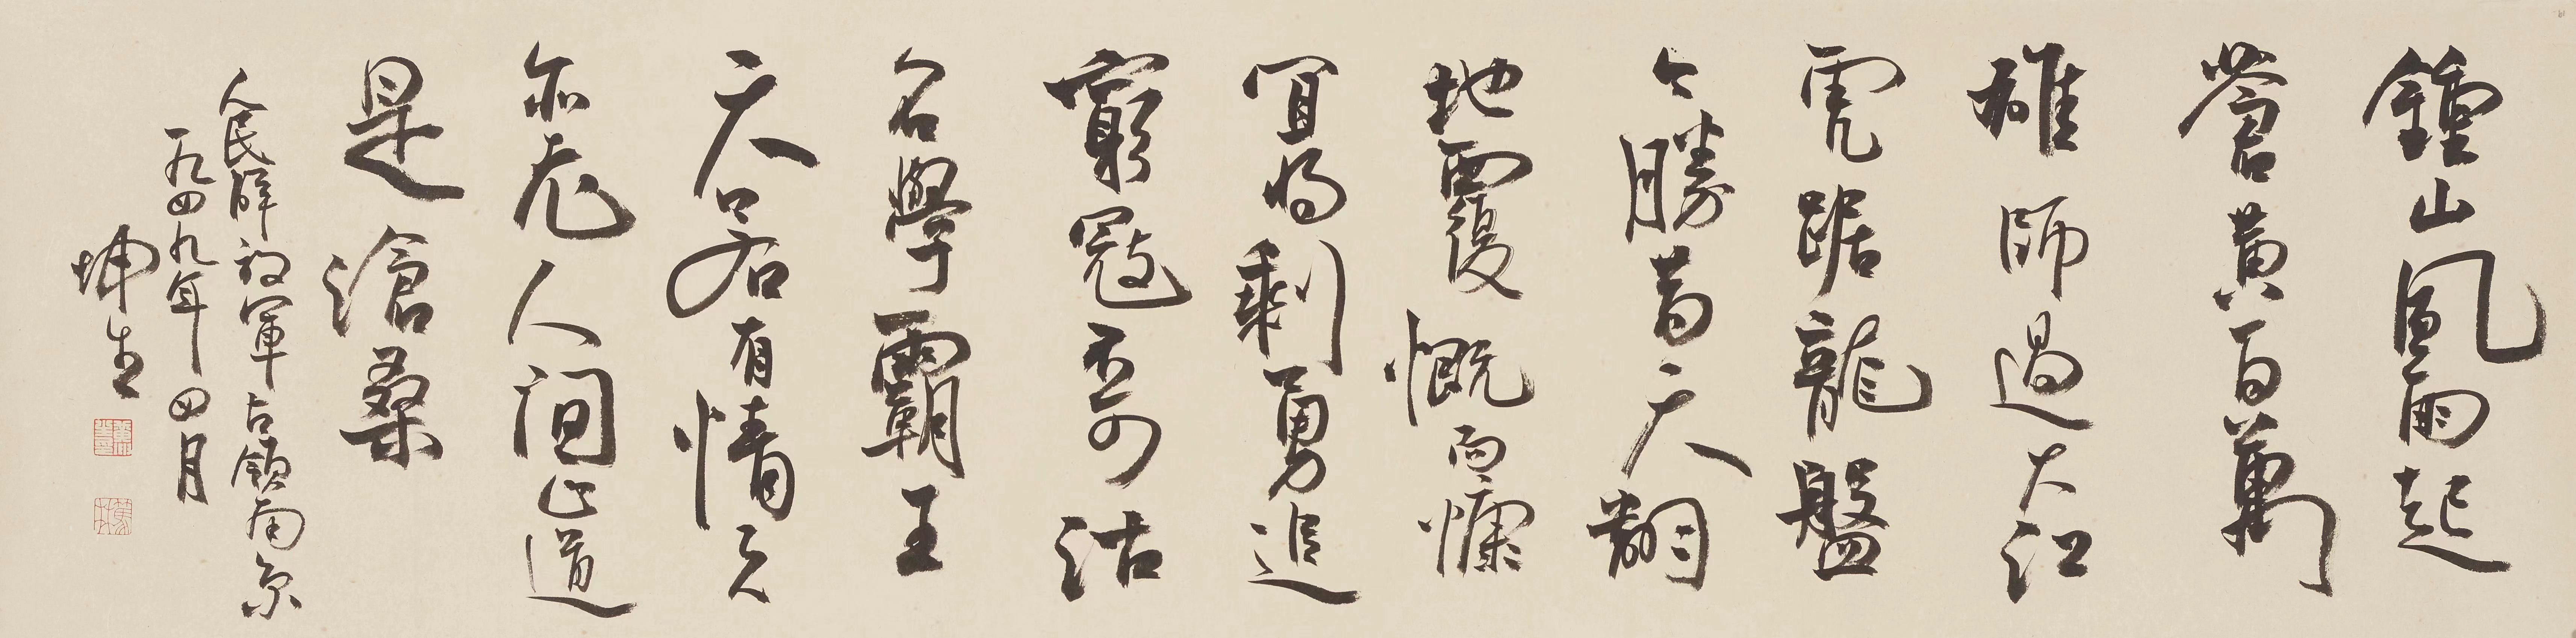 鍾山風雨起
蒼黃百萬
雄師過大江
虎踞龍盤
今勝昔天翻
地覆慨而慷
宜將剩勇追
窮寇不可沽
名學霸王
天若有情天
亦老人間正道
是滄桑
人民解放軍占領南京
一九四九年四月
坤生